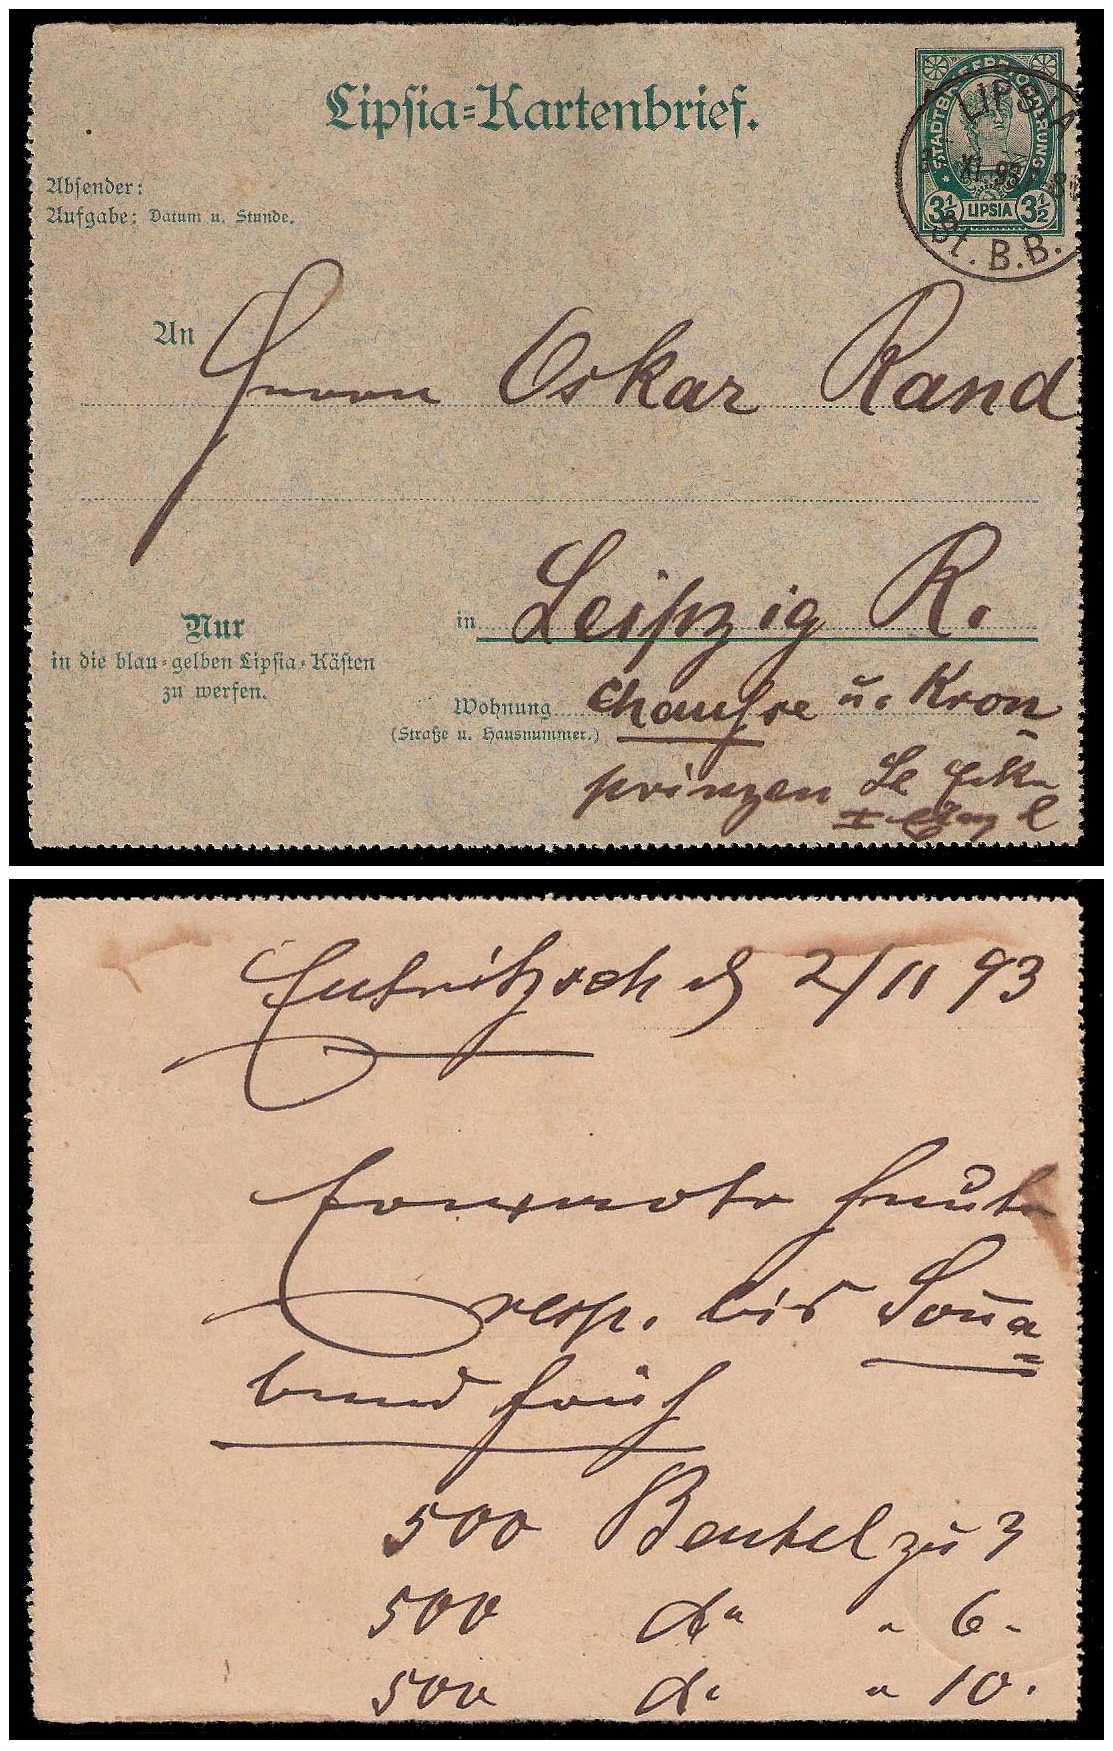 Lipsia-Kartenbrief.
STADTBRIEFBEFÖRDERUNG
3½ LIPSIA 3½
LIPSIA
XI. 93
St. B.B.
Absender:
Aufgabe: Datum u. Stunde.
An Herrn Oskar Rand
in Leipzig R.
Nur
in die blau-gelben Lipsia-Kästen
zu werfen.
Wohnung Chausse u. Kron
(Straße u. Hausnummer.)
prinzen
Eutritzsch d 2/11 93
Erwarte heute
resp. bis Sona=
bend früh
500 Beutel zu 3
500 do " 6 "
500 do " 10 "